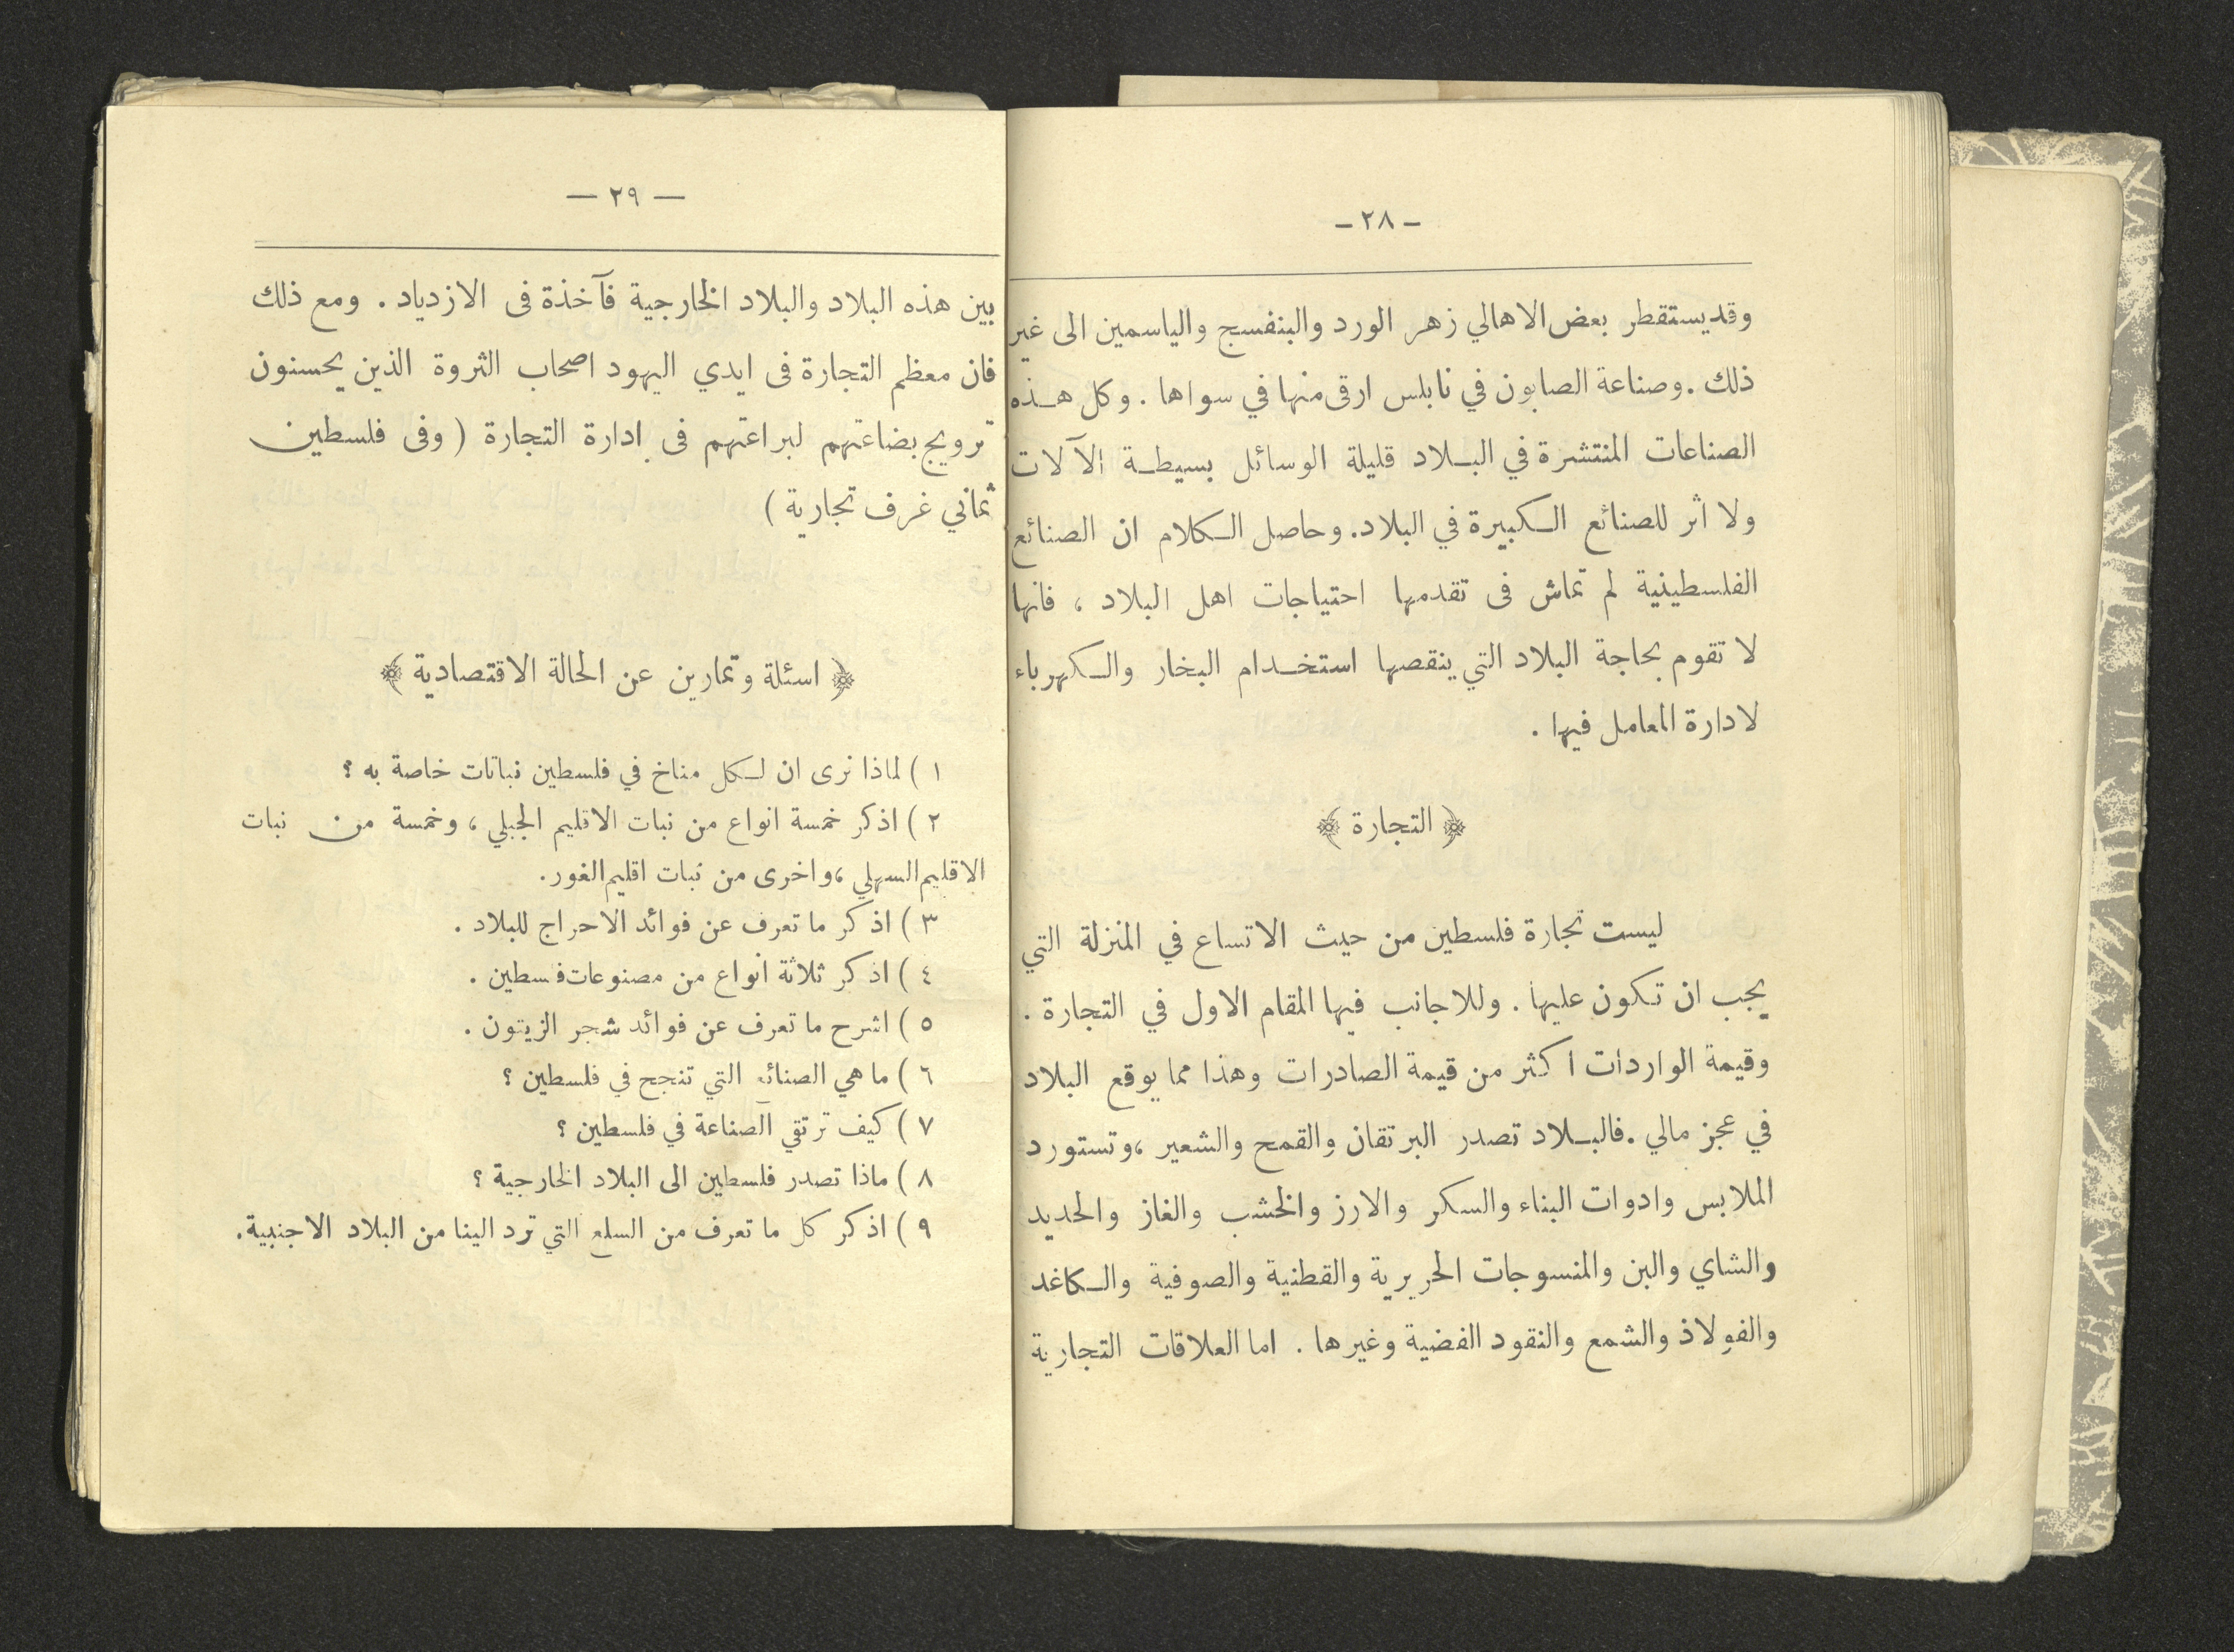 – ٢٨ –
وقد يستقطر بعض الاهالي زهر الورد والبنفسج والياسمين الى غير
ذلك . وصناعة الصابون في نابلس ارقى منها في سواها . وكل هـذه
الصناعات المنتشرة في البـلاد قليلة الوسائل بسيطـة الآلات
ولا اثر للصنائع الـكبيرة في البلاد. وحاصل الـكلام ان الصنائع
الفلسطينية لم تماش فى تقدمها احتياجات اهل البلاد ، فانها
لا تقوم بحاجة البلاد التي ينقصها استخـدام البخار والـكهرباء
لادارة المعامل فيها .
﴿ التجارة ﴾
ليست تجارة فلسطين من حيث الاتساع في المنزلة التي
يجب ان تكون عليها . وللاجانب فيها المقام الاول في التجارة .
وقيمة الواردات اكثر من قيمة الصادرات وهذا مما يوقع البلاد
في عجز مالي . فالبـلاد تصدر البرتقان والقمح والشعير ،وتستورد
الملابس وادوات البناء والسكر والارز والخشب والغاز والحديد
والشاي والبن والمنسوجات الحريرية والقطنية والصوفية والـكاغد
والفولاذ والشمع والنقود الفضية وغيرها . اما العلاقات التجارية
— ٢٩ —
بين هذه البلاد والبلاد الخارجية فآخذة فى الازدياد . ومع ذلك
فان معظم التجارة فى ايدي اليهود اصحاب الثروة الذين يحسنون
ترويج بضاعتهم لبراعتهم فى ادارة التجارة ( وفى فلسطين
ثماني غرف تجارية )
﴿ اسئلة وتمارين عن الحالة الاقتصادية ﴾
١ ) لماذا نرى ان لـكل مناخ في فلسطين نباتات خاصة به ؟
٢ ) اذكر خمسة انواع من نبات الاقليم الجبلي ، وخمسة من نبات
الاقليم السهلي ،واخرى من نبات اقليم الغور.
٣ ) اذكر ما تعرف عن فوائد الاحراج للبلاد .
٤ ) اذكر ثلاثة انواع من مصنوعات فسطين .
٥ ) اشرح ما تعرف عن فوائد شجر الزيتون .
٦ ) ما هي الصنائع التي تنجح في فلسطين ؟
٧ ) كيف ترتقي الصناعة في فلسطين ؟
٨ ) ماذا تصدر فلسطين الى البلاد الخارجية ؟
٩ ) اذكر كل ما تعرف من السلع التي ترد الينا من البلاد الاجنبية.